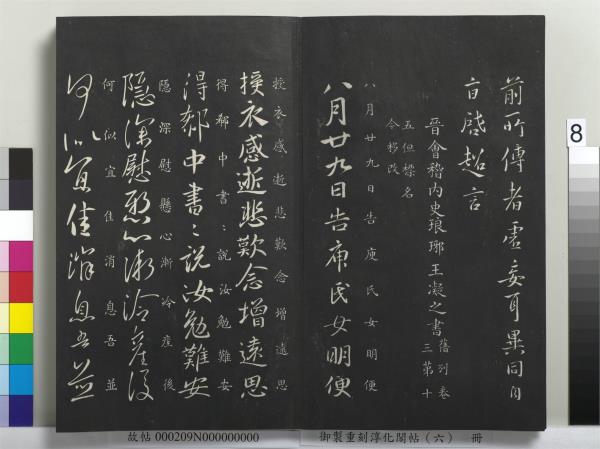 前所傳者虛妄耳異同自
百啓超言
晉會稽內史琅瑘王凝之書 舊列卷三第十五但標名今移改
八月廿九日告庾氏女明便
八月廿九日告庾氏女明便
授衣感逝悲歎念增遠思
授衣感逝悲歎念增遠思
得郗中書〻說汝勉難安
得郗中書〻說汝勉難安
隱深慰懸心漸冷產後
隱深慰懸心漸冷產後
何似宜佳消息吾並
何似宜佳消息吾並
8
故帖 000209N000000000
御製重刻淳化閣帖（六） 冊